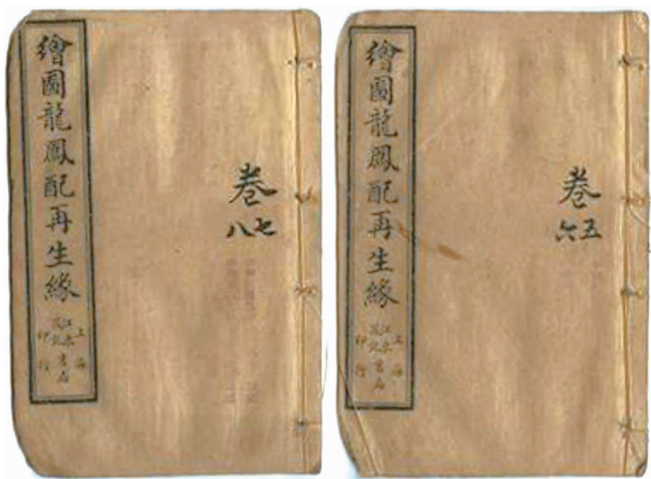 繪圖龍鳳配再生緣
上海
江東茂記書局
印行
卷
七八
繪圖龍鳳配再生緣
上海
江東茂記書局
印行
卷
五六